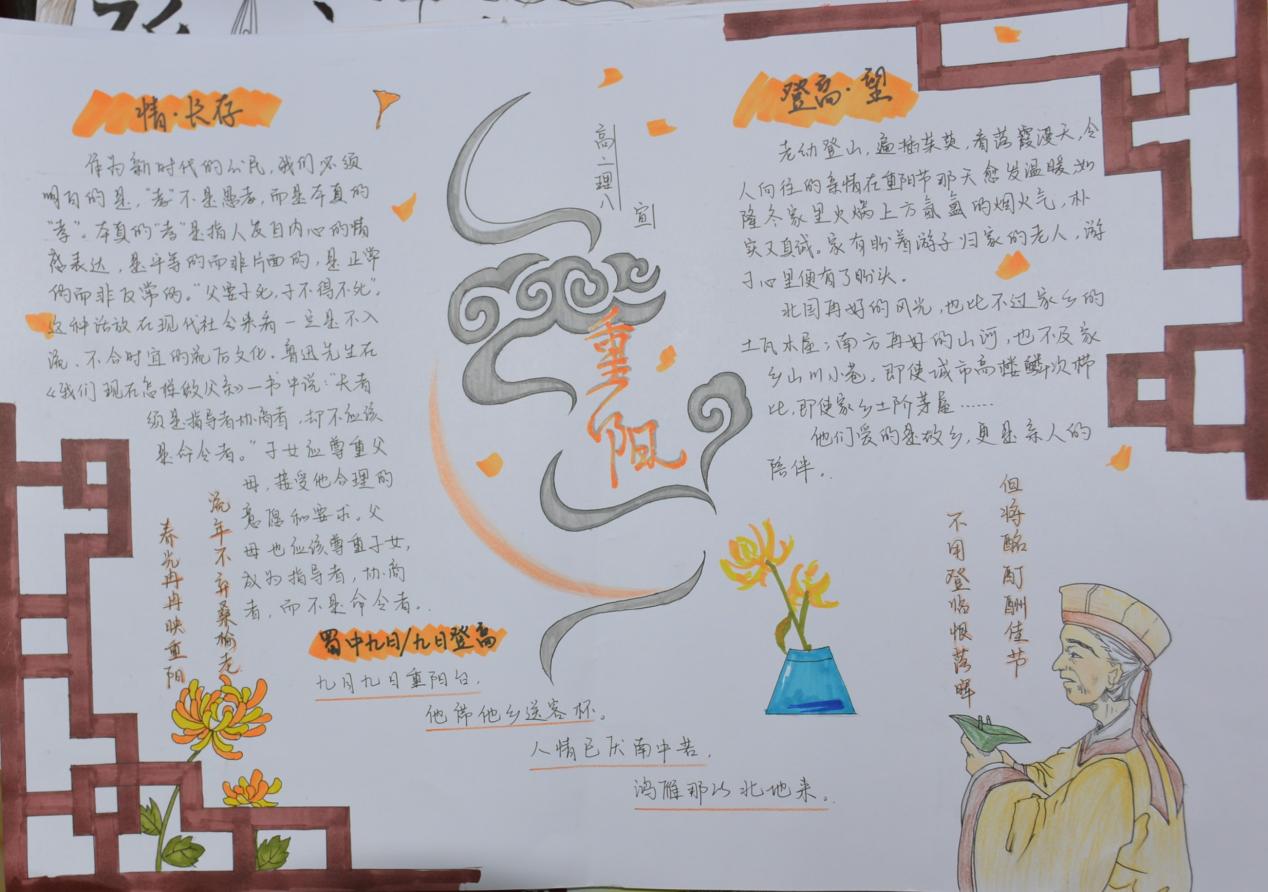 情·长存
作为新时代的公民，我们必须
明白的是，“孝”不是愚孝，而是本真的
“孝”。本真的“孝”是指人发自内心的情
感表达，是平等的而非片面的，是正常
的而非反常的。“父要子死，子不得不死”。
这种话放在现代社会来看一定是不入
流、不合时宜的流后文化。鲁迅先生在
《我们现在怎样做父亲》一书中说：“长者
须是指导者协商者，却不应该
是命令者。”子女应尊重父
母，接受他合理的
意愿和要求。父
母也应该尊重子女，
成为指导者，协商
者，而不是命令者。
流年不弃桑榆老
春光冉冉映重阳
高二理八
宣
重阳
蜀中九日/九日登高
九月九日重阳台，
他席他乡送客杯。
人情已厌南中苦，
鸿雁那从北地来。
登高·望
老幼登山，遍插茱萸，看落霞漫天，令
人向往的亲情在重阳节那天愈发温暖，如
隆冬家里火锅上方氤氲的烟火气，朴
实又真诚。家有盼着游子归家的老人，游
子心里便有了盼头。
北国再好的风光，也比不过家乡的
土瓦木屋；南方再好的山河，也不及家
乡山川小巷。即使城市高楼鳞次栉
比，即使家乡土阶茅屋……
他们爱的是故乡，更是亲人的
陪伴。
但将酩酊酬佳节
不用登临恨落晖